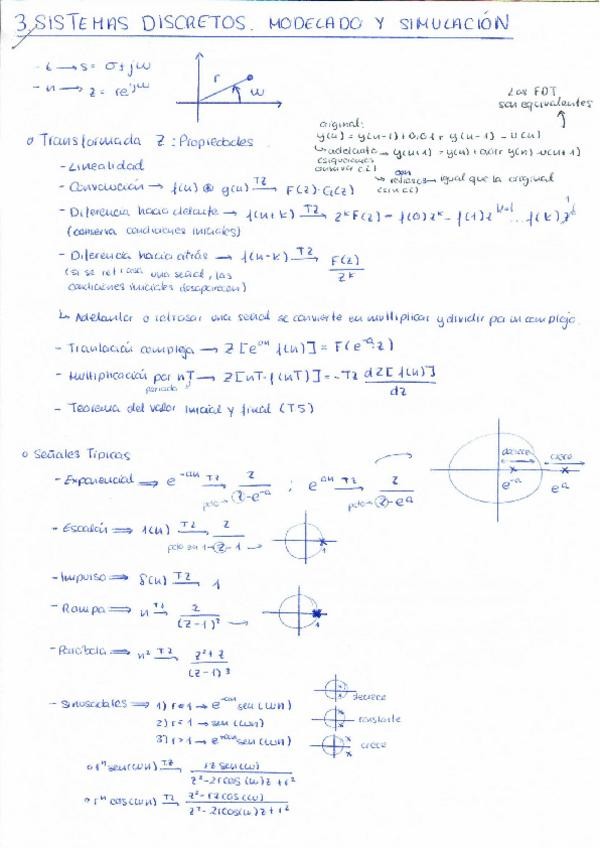 3. SISTEMAS DISCRETOS. MODELADO Y SIMULACIÓN
- t → s = σ + jω
- n → z = re^jω
r
ω
Las FDT
son equivalentes
original:
y(n) = y(n-1) + 0,01 r y(n-1) - u(n)
adelanto → y(n+1) = y(n) + 0,01 r y(n) - u(n+1)
con retraso → igual que la original
o Transformada Z: Propiedades
- Linealidad
- Convolución → f(n) ⊛ g(n) TZ→ F(z)·G(z)
- Diferencia hacia delante → f(n+k) TZ→ z^k F(z) - f(0)z^k - f(1)z^k-1 ... f(k)z^1
(conserva condiciones iniciales)
- Diferencia hacia atrás → f(n-k) TZ→ F(z)/z^k
(si se retrasa una señal, las
condiciones iniciales desaparecen)
↳ Adelantar o retrasar una señal se convierte en multiplicar y dividir por un complejo.
- Tranlación compleja → Z[e^an f(n)] = F(e^-a·z)
- Multiplicación por nT → Z[nT·f(nT)] = -Tz dZ[f(n)]/dz
periodo
- Teorema del valor inicial y final (TS)
o Señales Típicas
decrece
crece
e^-a
e^a
- Exponencial ⟹ e^-an TZ→ z/(z-e^-a) ; e^an TZ→ z/(z-e^a)
polo
polo
- Escalón ⟹ 1(n) TZ→ z/(z-1)
polo en 1
1
- Impulso ⟹ δ(n) TZ→ 1
- Rampa ⟹ n TZ→ z/(z-1)^2
1
- Parábola ⟹ n^2 TZ→ (z^2+z)/(z-1)^3
- Sinusoidales ⟹ 1) r<1 → e^-an sen(ωn)
decrece
2) r=1 → sen(ωn)
constante
3) r>1 → e^an sen(ωn)
crece
o r^n sen(ωn) TZ→ rz sen(ω)/(z^2-2rcos(ω)z+r^2)
o r^n cos(ωn) TZ→ (z^2-rz cos(ω))/(z^2-2rcos(ω)z+r^2)